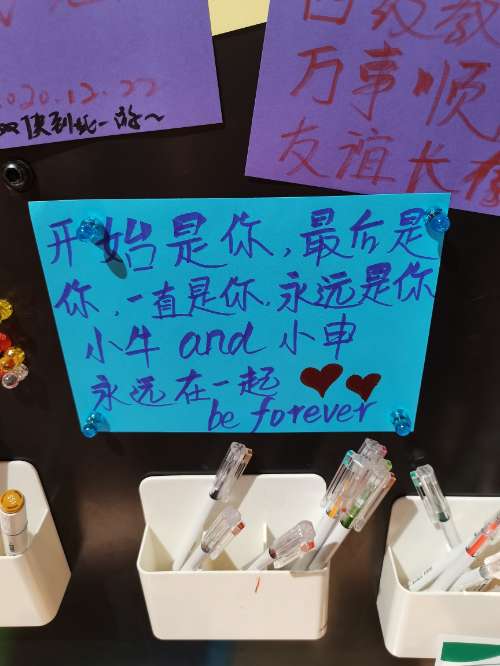 2020.12.27
到此一游~
万事顺
友谊长
开始是你,最后是
你,一直是你.永远是你
小牛 and 小申
永远在一起
be forever